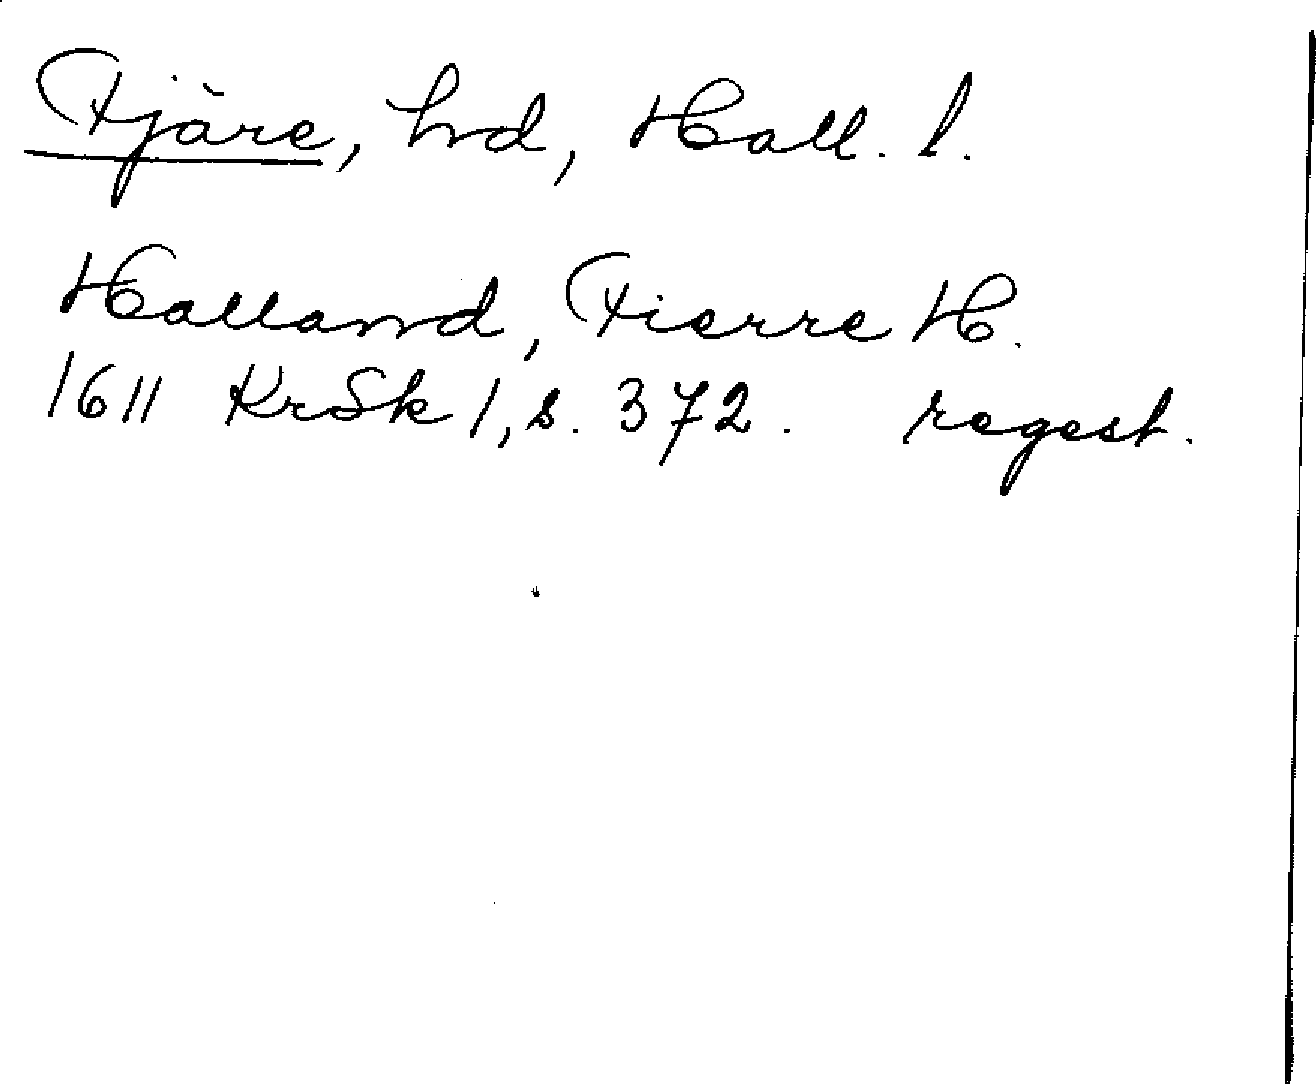 Fjäre, hd, Hall. l.
Halland, Fierre H.
1611 KrSk 1, s. 372. regest.